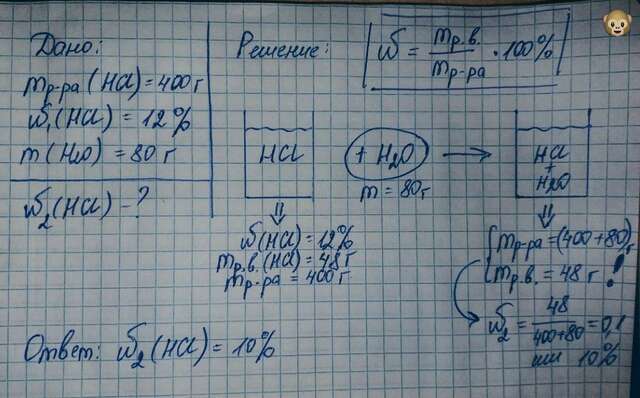 Дано:
mр-ра (HCl) = 400 г
ω₁ (HCl) = 12%
m (H₂O) = 80 г
ω₂ (HCl) - ?
Решение:
ω = mр.в. / mр-ра · 100%
HCl
+ H₂O
m = 80 г
HCl
+
H₂O
ω (HCl) = 12%
mр.в. (HCl) = 48 г
mр-ра = 400 г
mр-ра = (400 + 80) г
mр.в. = 48 г !
ω₂ = 48 / 400+80 = 0,1
или 10%
Ответ: ω₂ (HCl) = 10%